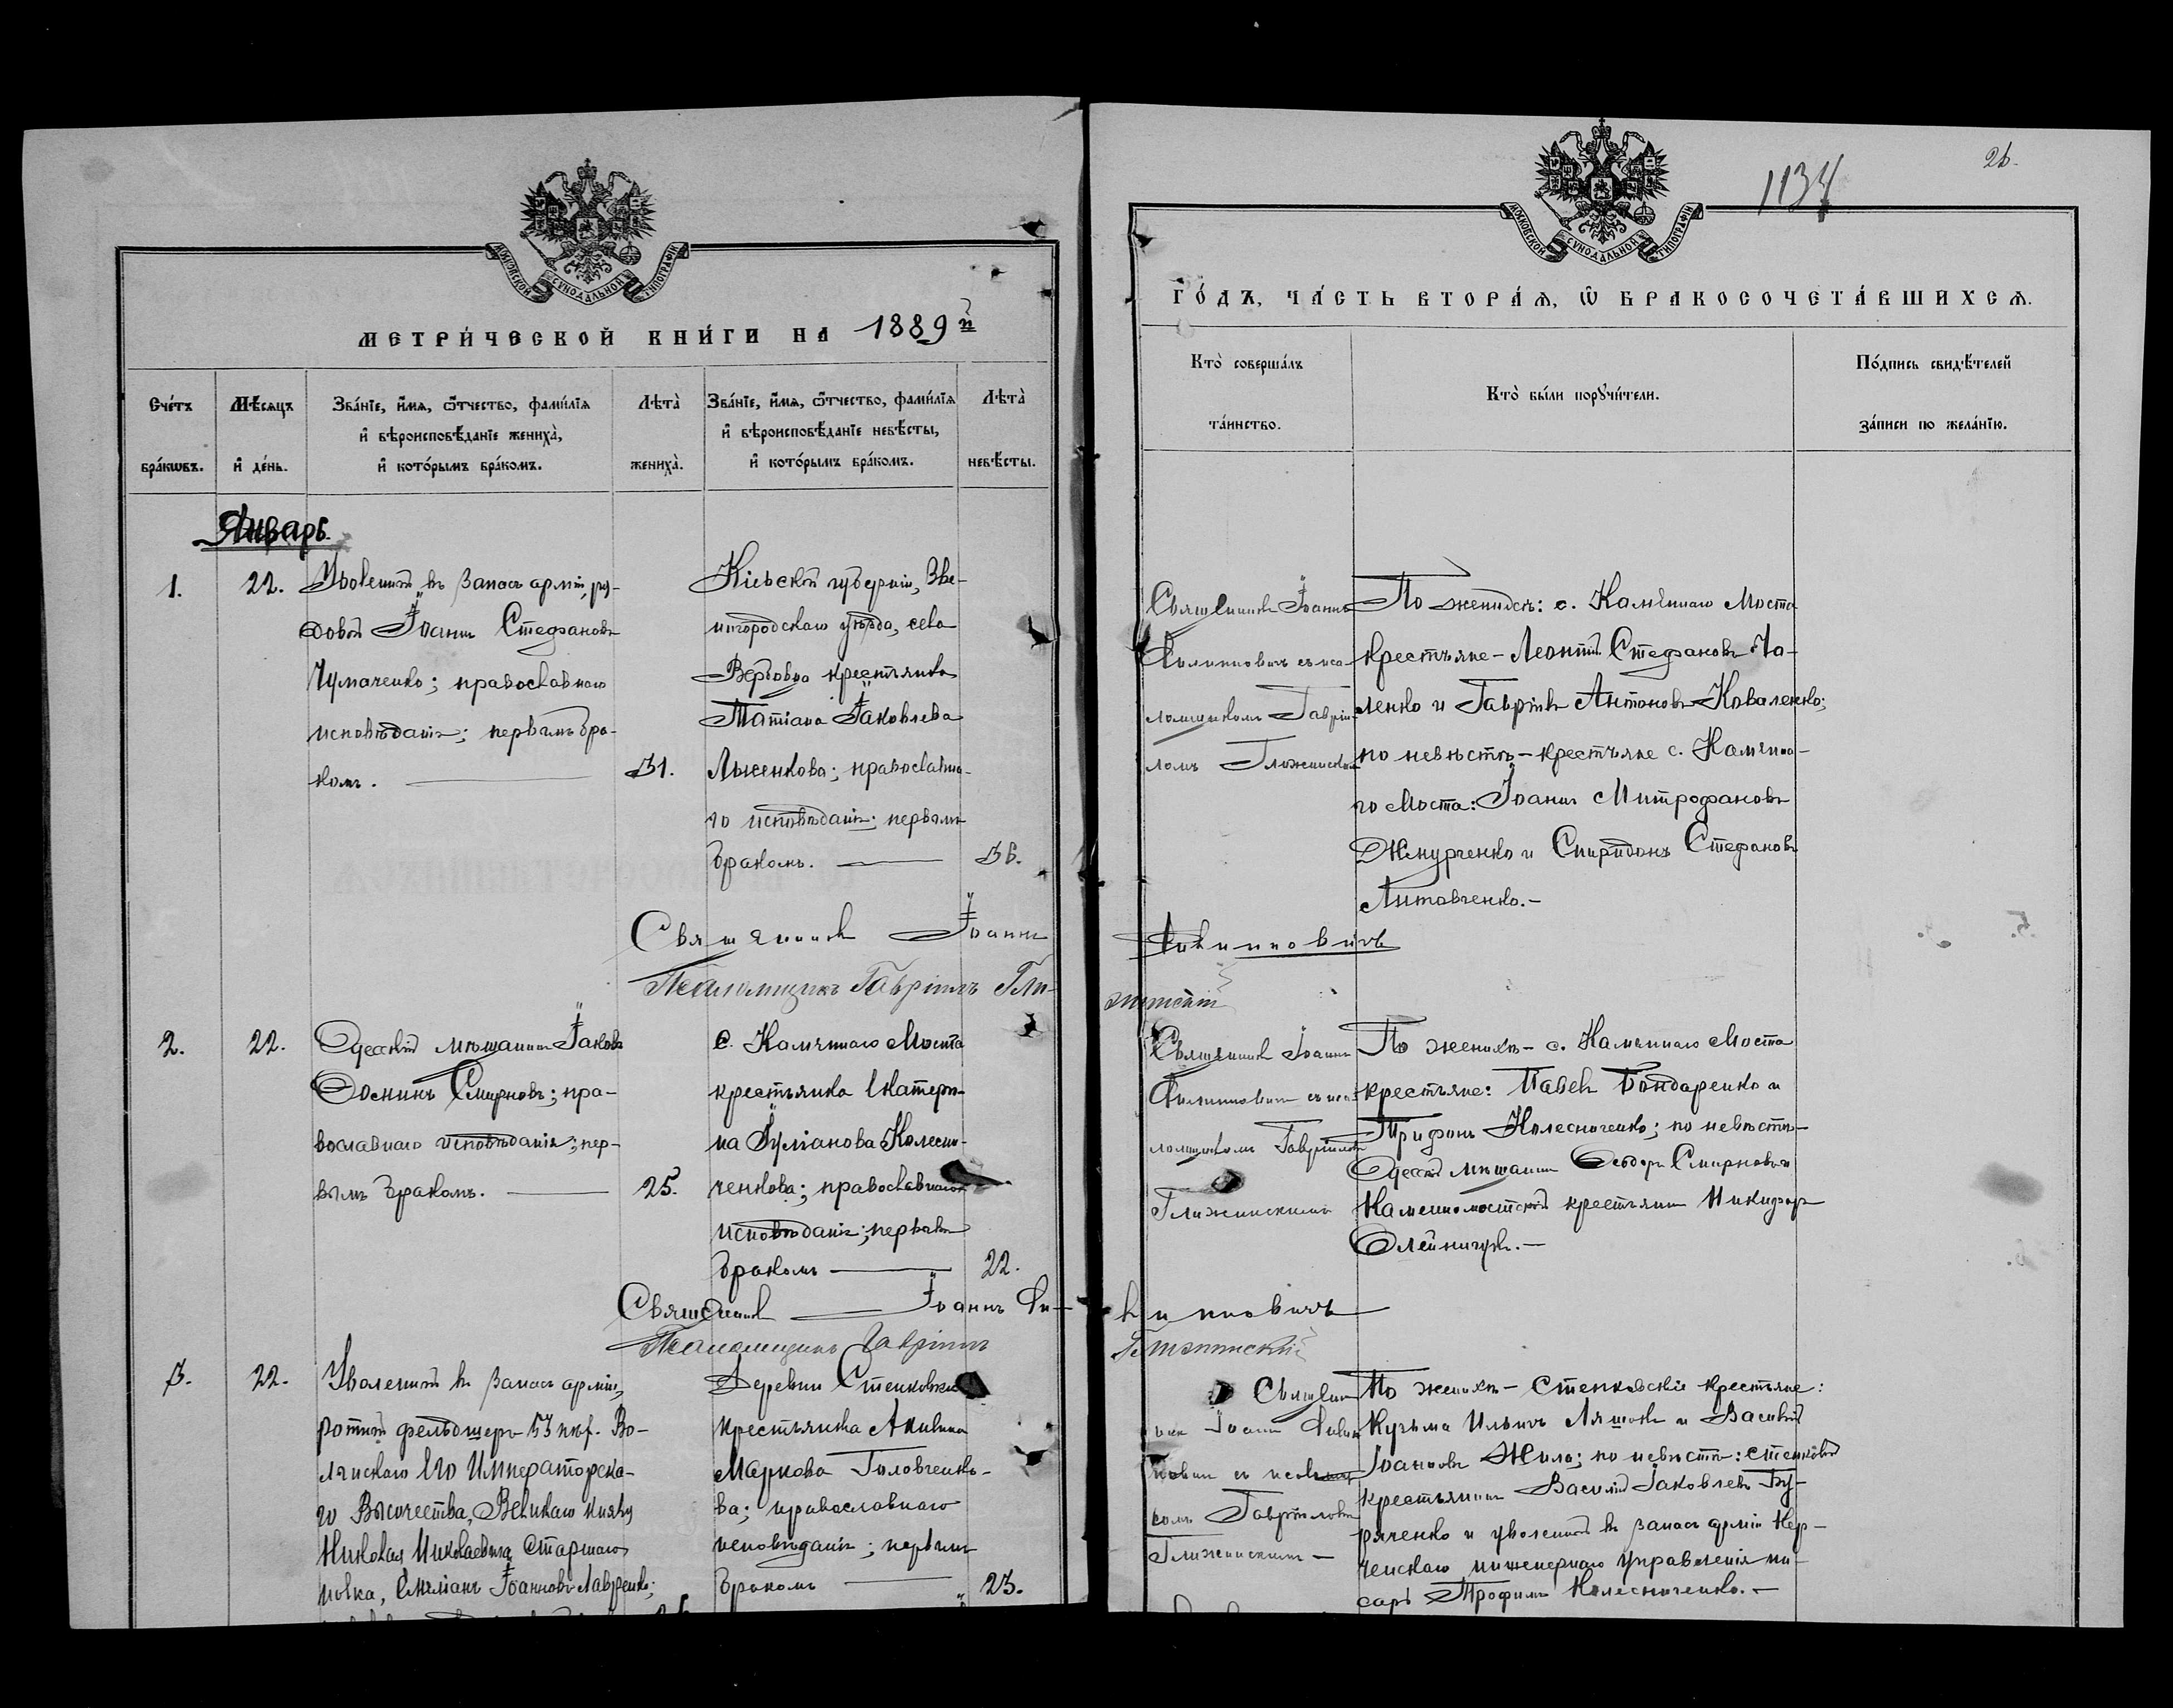 МОСКОВСКОЙ СѴНОДАЛЬНОЙ ТИПОГРАФІИ
МЕТРИ́ЧЕСКОЙ КНИ́ГИ НА 1889й
Сче́тъ бра́кѡвъ.
Мѣ́сяцъ и҆ де́нь.
Зва́нїе, и҆́мѧ, ѻ҆́тчество, фами́лїѧ
и҆ вѣроисповѣ́данїе жениха̀,
и҆ кото́рымъ бра́комъ.
Лѣта̀ жениха̀.
Зва́нїе, и҆́мѧ, ѻ҆́тчество, фами́лїѧ
и҆ вѣроисповѣ́данїе невѣ́сты,
и҆ кото́рымъ бра́комъ.
Лѣта̀ невѣ́сты.
Январь.
1.
22.
Уволенный въ запасъ арміи, ря-
довой Іоаннъ Стефановъ
Чумаченко; православнаго
исповѣданія; первымъ бра-
комъ.
31.
Кіевской губерніи, Зве-
нигородскаго уѣзда, села
Вербовца крестьянка
Татіана Іаковлева
Лысенкова; православна-
го исповѣданія; первымъ
бракомъ.
36.
Священникъ Іоаннъ
Псаломщикъ Гавріилъ Гли-
2.
22.
Одесскій мѣщанинъ Іаковъ
Смирновъ; пра-
вославнаго исповѣданія; пер-
вымъ бракомъ.
25.
с. Камяннаго Моста
крестьянка Екатери-
на Іуліанова Колесни-
ченкова; православнаго
исповѣданія; первымъ
бракомъ
22.
Священникъ Іоаннъ Фи-
Псаломщикъ Гавріилъ
3.
22.
Уволенный въ запасъ арміи,
ротный фельдшеръ 53 пѣх. Во-
лынскаго Его Императорска-
го Высочества, Великаго князя
Николая Николаевича Старшаго
полка, Емиліанъ Іоанновъ Лавренко;
Деревни Стенковки
крестьянка Акилина
Маркова Головченко-
ва; православнаго
исповѣданія; первымъ
бракомъ
23.
МОСКОВСКОЙ СѴНОДАЛЬНОЙ ТИПОГРАФІИ
1134
26.
ГО́ДЪ, ЧА́СТЬ ВТОРА́Ѧ, Ѡ҆ БРАКОСОЧЕТА́ВШИХСѦ.
Кто̀ соверша́лъ
та́инство.
Кто̀ бы́ли порꙋчи́тели.
По́дпись свидѣ́телей
за́писи по жела́нїю.
Священникъ Іоаннъ
Филипповичъ съ пса-
ломщикомъ Гавріи-
ломъ Глижинскимъ
По женихѣ: с. Камяннаго Моста
крестьяне - Леонтій Стефановъ Ча-
ленко и Гавріилъ Антоновъ Коваленко;
по невѣстѣ - крестьяне с. Камянна-
го Моста: Іоаннъ Митрофановъ
Джмурченко и Спиридонъ Стефановъ
Литовченко.-
Филипповичъ
жинскій
Священникъ Іоаннъ
Филипповичъ съ пса-
ломщикомъ Гавріиломъ
Глижинскимъ
По женихѣ - с. Камяннаго Моста
крестьяне: Павелъ Бондаренко и
Трифонъ Колесниченко; по невѣстѣ-
Одесскій мѣщанинъ Ѳеодоръ Смирновъ и
Каменномостскій крестьянинъ Никифоръ
Олейничукъ.-
липповичъ
Глижинскій
Священ-
никъ Іоаннъ Филип-
повичъ съ псаломщи-
комъ Гавріиломъ
Глижинскимъ -
По женихѣ - Стенковскіе крестьяне:
Кузьма Ильичъ Ляшокъ и Василій
Іоанновъ Жила; по невѣстѣ: стенковскій
крестьянинъ Василій Іаковлевъ Бу-
ряченко и уволенный въ запасъ арміи Кер-
ченскаго инженернаго управленія пи-
сарь Трофимъ Колесниченко.-